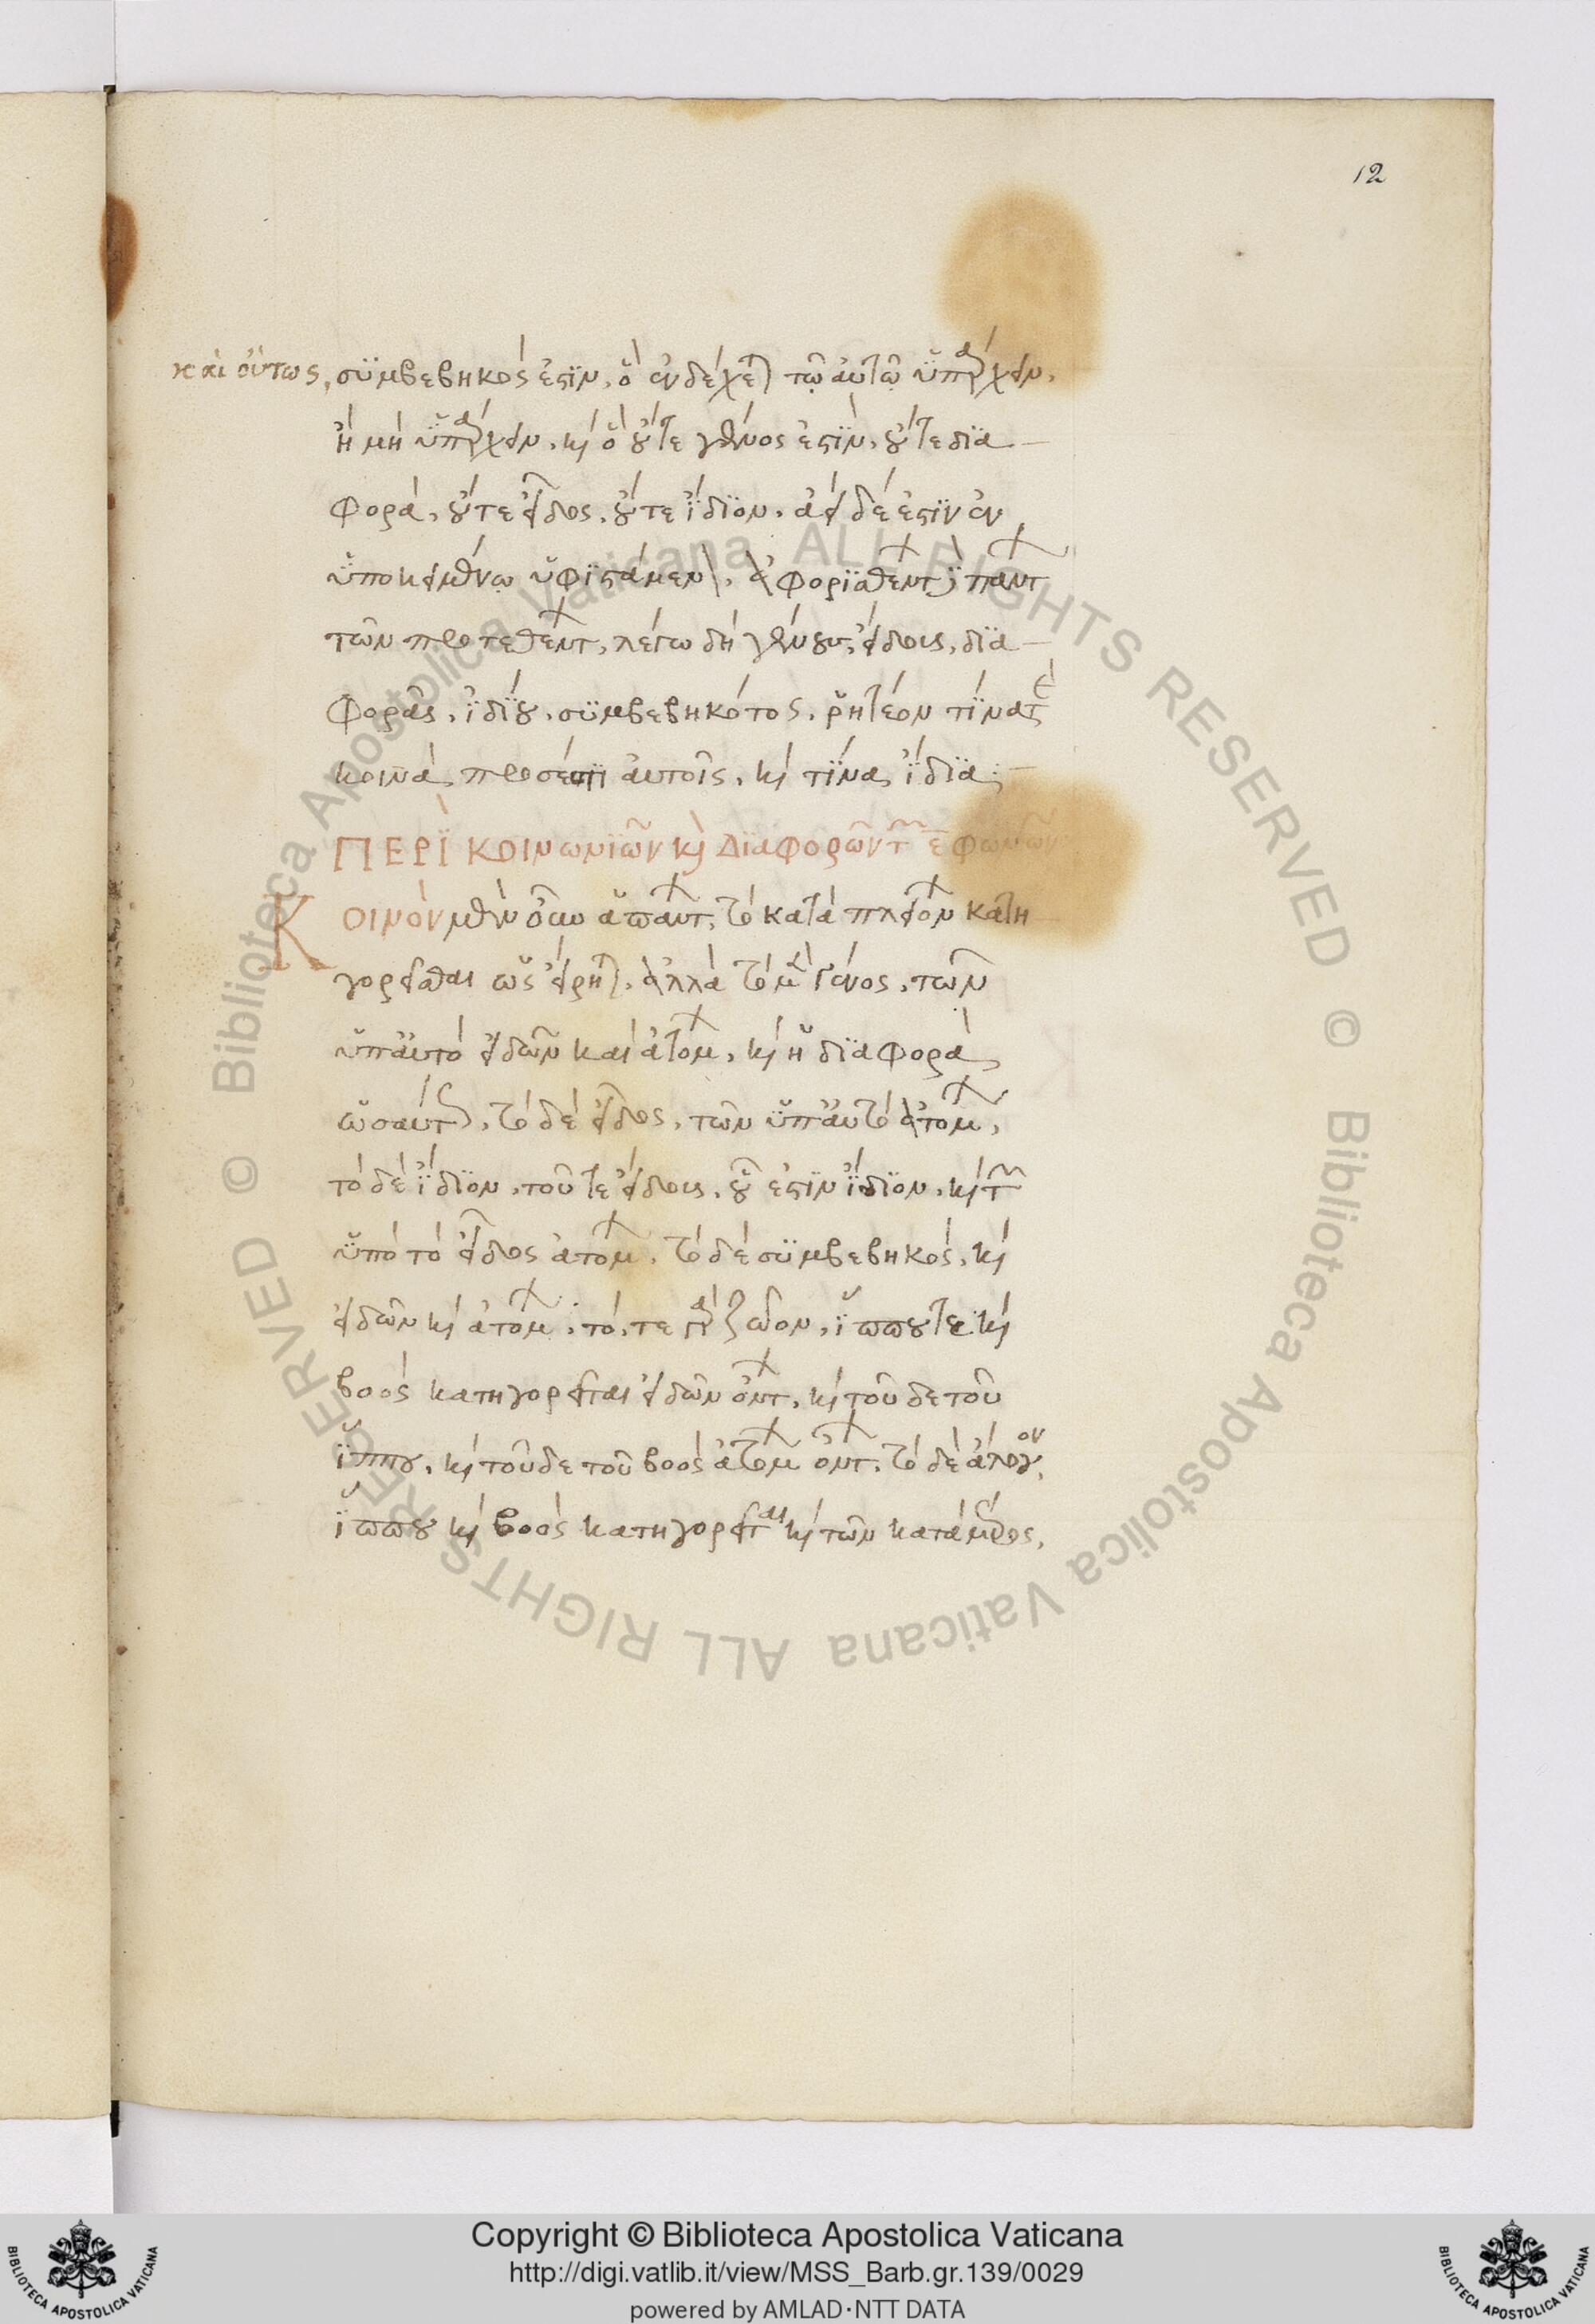 12
καὶ οὕτως, συμβεβηκός ἐστιν, ὃ ἐνδέχεται τῷ αὐτῷ ὑπάρχειν,
ἢ μὴ ὑπάρχειν. κὶ ὃ οὔτε γένος ἐστὶν, οὔτε δια
φορὰ, οὔτε εἶδος, οὔτε ἴδιον. ἀεὶ δέ ἐστιν ἐν
ὑποκειμένῳ ὑφιστάμενον. ἀφορισθέντων πάντων
τῶν προτεθέντων, λέγω δὴ γένους, εἴδους, δια
φορᾶς, ἰδίου, συμβεβηκότος, ῥητέον τίνα τε
κοινὰ πρόσεστι αὐτοῖς, κὶ τίνα ἴδια:
ΠΕΡῚ κοινωνιῶν κὶ Διαφορῶν τῶν ε̄ φωνῶν
Κοινὸν μὲν οὖν ἁπάντων, τὸ κατὰ πλειόνων κατη
γορεῖσθαι ὡς εἴρηται. ἀλλὰ τὸ μὲν γένος, τῶν
ὑπ' αὐτὸ εἰδῶν καὶ ἀτόμων, κὶ ἡ διαφορὰ
ὡσαύτως. τὸ δὲ εἶδος, τῶν ὑπ' αὐτὸ ἀτόμων,
τὸ δὲ ἴδιον, τοῦ τε εἴδους, οὗ ἐστιν ἴδιον, κὶ τῶν
ὑπὸ τὸ εἶδος ἀτόμων. τὸ δὲ συμβεβηκός, κὶ
εἰδῶν κὶ ἀτόμων. τό, τε γὰρ ζῶον, ἵππου τε κὶ
βοὸς κατηγορεῖται εἰδῶν ὄντων, κὶ τοῦδε τοῦ
ἵππου, κὶ τοῦδε τοῦ βοὸς ἀτόμων ὄντων. τὸ δὲ ἄλογον,
ἵππου κὶ βοὸς κατηγορεῖται κὶ τῶν κατὰ μέρος,
© Biblioteca Apostolica Vaticana ALL RIGHTS RESERVED © Biblioteca Apostolica Vaticana ALL RIGHTS RESERVED
BIBLIOTECA APOSTOLICA VATICANA
Copyright © Biblioteca Apostolica Vaticana
http://digi.vatlib.it/view/MSS_Barb.gr.139/0029
powered by AMLAD·NTT DATA
BIBLIOTECA APOSTOLICA VATICANA